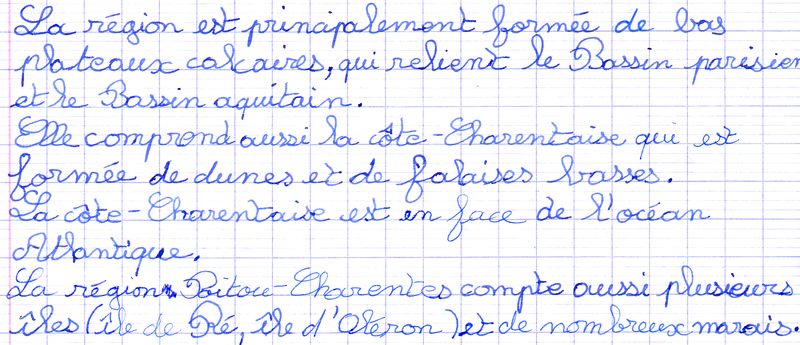 La région est principalement formée de bas
plateaux calcaires, qui relient le Bassin parisien
et le Bassin aquitain.
Elle comprend aussi la côte-Charentaise qui est
formée de dunes et de falaises basses.
La côte-Charentaise est en face de l'océan
Atlantique.
La région Poitou-Charentes compte aussi plusieurs
îles (île de Ré, île d'Oléron) et de nombreux marais.